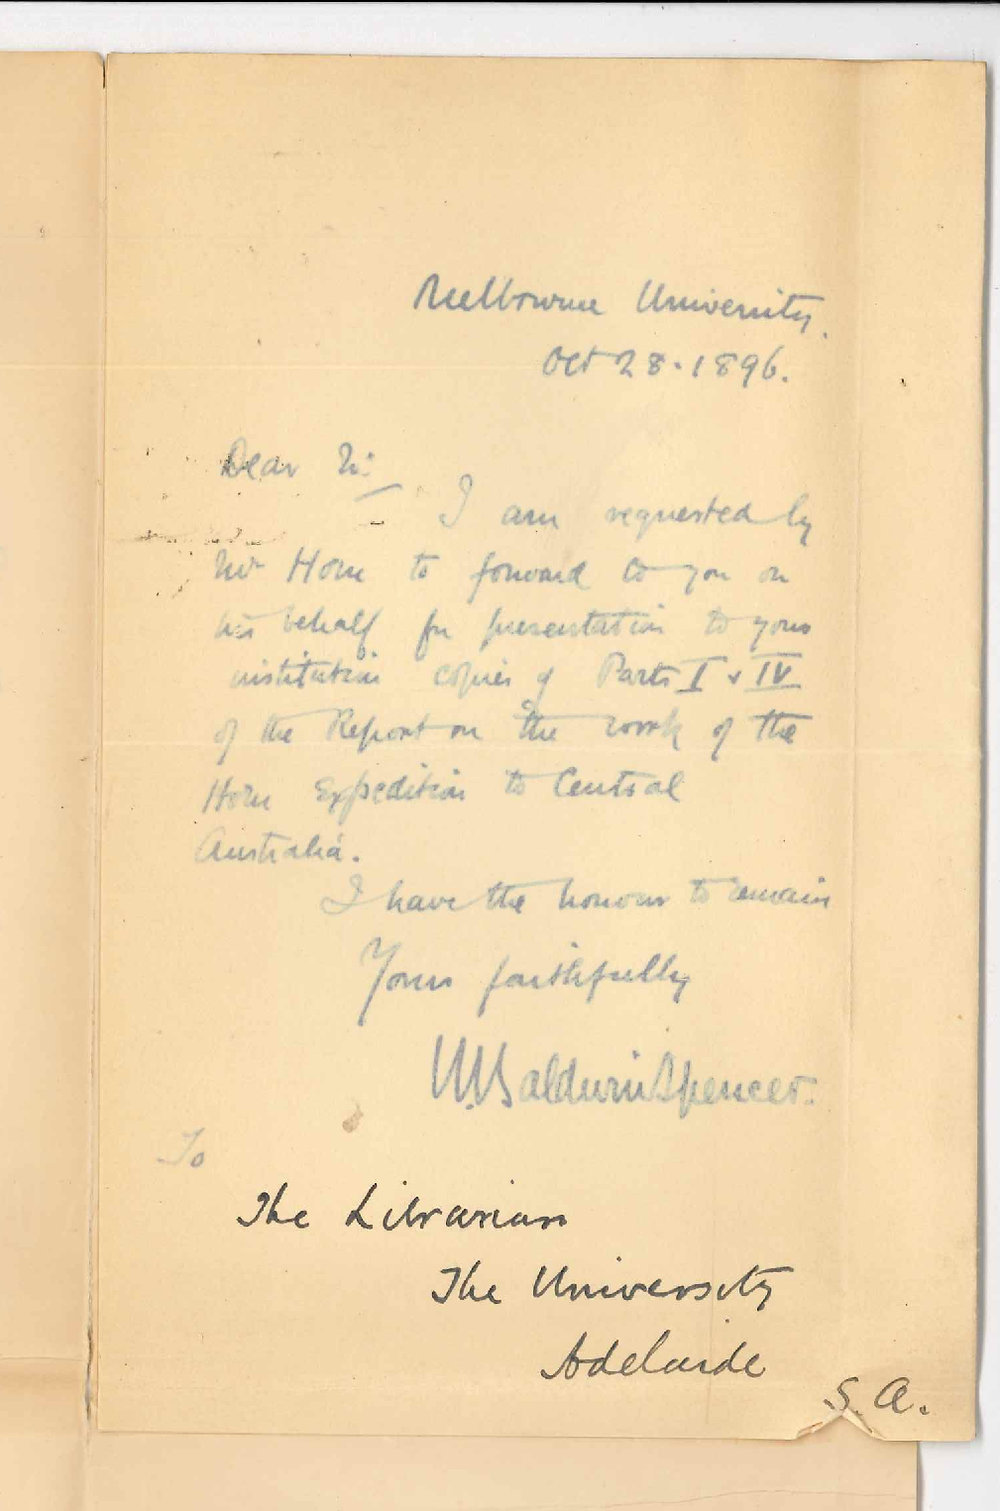 Melbourne University.
Oct 28. 1896.
Dear Sir
I am requested by
Mr Horn to forward to you on
his behalf for presentation to your
institution copies of Parts I & IV
of the Report on the work of the
Horn Expedition to Central
Australia.
I have the honour to remain
Yours faithfully
W. Baldwin Spencer.
To
The Librarian
The University
Adelaide
S. A.